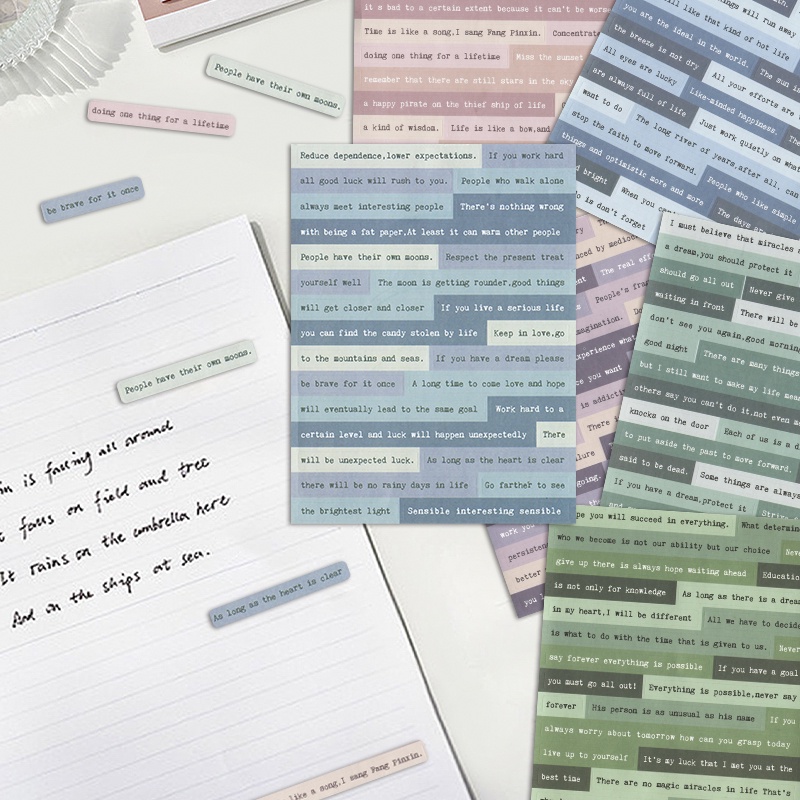 it a bad to a certain extent because it can't be worse
Time is like a song.I sang Fang Pinxin. Concentrate
doing one thing for a lifetime Miss the sunset
remember that there are still stars in the sky
a happy pirate on the thief ship of life
a kind of wisdom. Life is like a bow,and
will like that kind of hot life
you are the ideal in the world. The sun is
the breeze is not dry All your efforts are
All eyes are lucky Like-minded happiness. The
are always full of life Just work quietly on what
want to do The long river of years,after all, can
stop the faith to move forward. People who like simple
things and optimistic more and more The days are
bright When you can
do is don't forget
People have their own moons.
doing one thing for a lifetime
be brave for it once
Reduce dependence,lower expectations. If you work hard
all good luck will rush to you. People who walk alone
always meet interesting people There's nothing wrong
with being a fat paper.At least it can warm other people
People have their own moons. Respect the present treat
yourself well The moon is getting rounder,good things
will get closer and closer If you live a serious life
you can find the candy stolen by life Keep in love,go
to the mountains and seas. If you have a dream please
be brave for it once A long time to come love and hope
will eventually lead to the same goal Work hard to a
certain level and luck will happen unexpectedly There
will be unexpected luck. As long as the heart is clear
there will be no rainy days in life Go farther to see
the brightest light Sensible interesting sensible
I must believe that miracles
a dream,you should protect it
should go all out Never give
waiting in front There will be
don't see you again,good morning
good night There are many things
but I still want to make my life
others say you can't do it.not even
knocks on the door Each of us is a
to put aside the past to move forward.
said to be dead. Some things are always
If you have a dream,protect it
by medioc
The real eff
People's
imagination.
experience what
you want
is addict
There
going.
work you
persisten
better
you
People have their own moons.
is falling all around
It falls on field and tree
It rains on the umbrella here
And on the ships at sea.
As long as the heart is clear
like a song.I sang Fang Pinxin.
you will succeed in everything. What determin
who we become is not our ability but our choice
give up there is always hope waiting ahead Education
is not only for knowledge As long as there is a dream
in my heart,I will be different All we have to decide
is what to do with the time that is given to us. Never
say forever everything is possible If you have a goal
you must go all out! Everything is possible,never say
forever His person is as unusual as his name If you
always worry about tomorrow how can you grasp today
live up to yourself It's my luck that I met you at the
best time There are no magic miracles in life That's